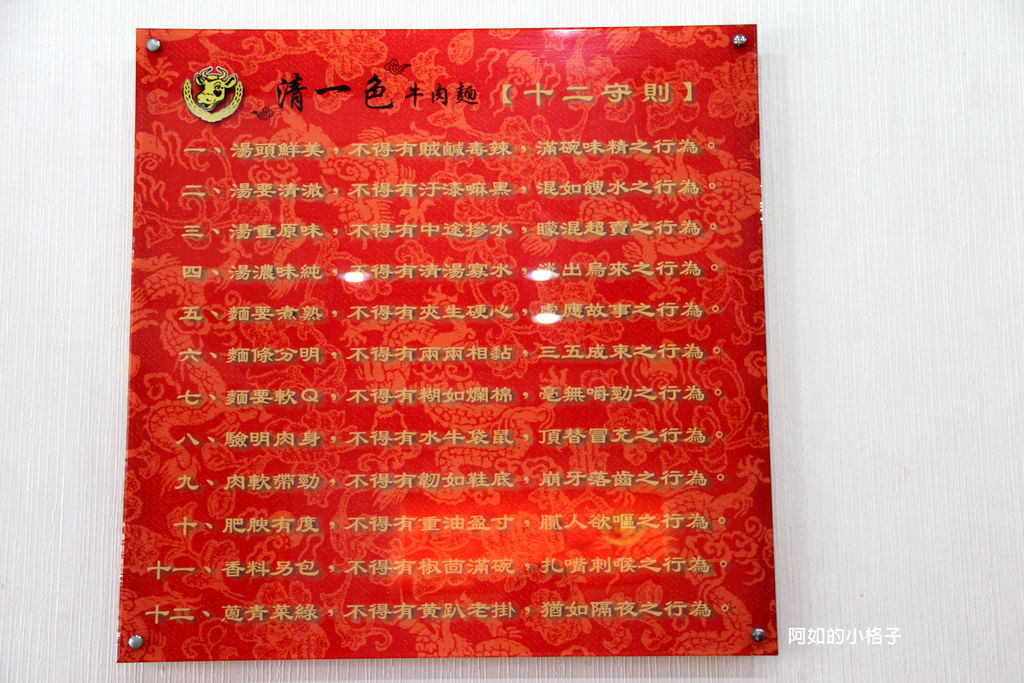 清一色牛肉麵【十二守則】
一、湯頭鮮美，不得有賊鹹毒辣，滿碗味精之行為。
二、湯要清澈，不得有汙漆嘛黑，混如餿水之行為。
三、湯重原味，不得有中途摻水，矇混超賣之行為。
四、湯濃味純，不得有清湯寡水，淡出鳥來之行為。
五、麵要煮熟，不得有夾生硬心，虛應故事之行為。
六、麵條分明，不得有兩兩相黏，三五成束之行為。
七、麵要軟Q，不得有糊如爛棉，毫無嚼勁之行為。
八、驗明肉身，不得有水牛袋鼠，頂替冒充之行為。
九、肉軟帶勁，不得有韌如鞋底，崩牙落齒之行為。
十、肥腴有度，不得有重油盈寸，膩人欲嘔之行為。
十一、香料另包，不得有椒茴滿碗，扎嘴刺喉之行為。
十二、蔥青菜綠，不得有黃趴老掛，猶如隔夜之行為。
阿如的小格子